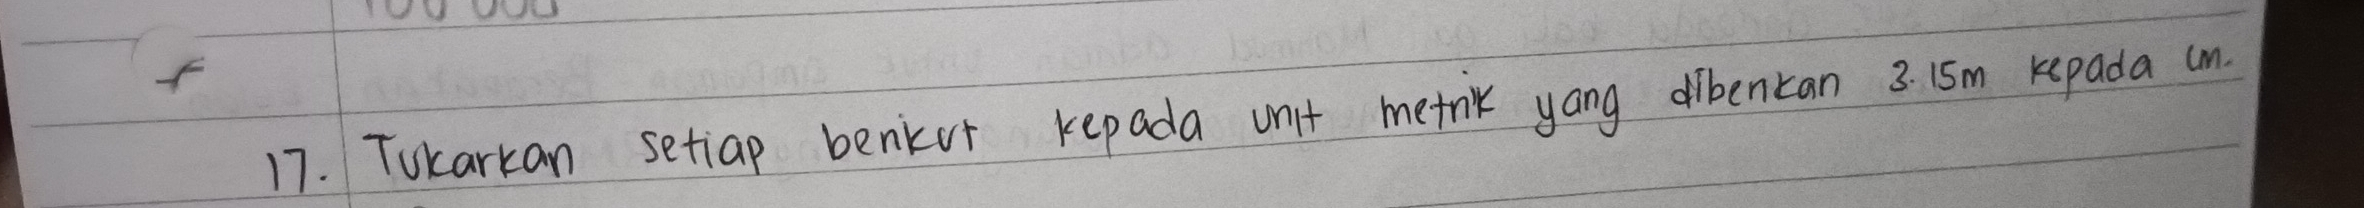 100 000
17. Tukarkan setiap berikut kepada unit metrik yang diberikan 3.15m kepada cm.